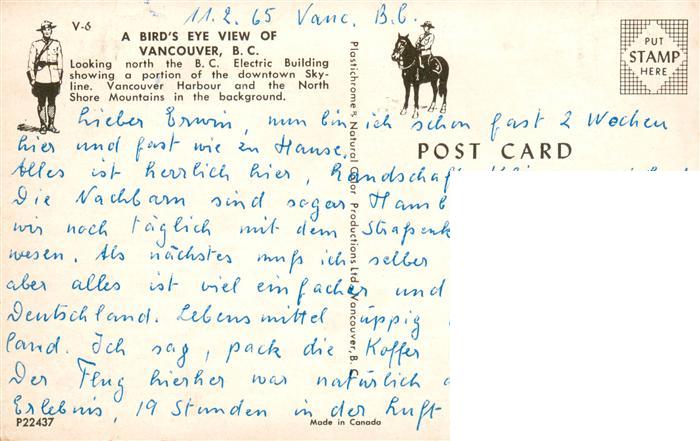 11.2.65 Vanc. B.C.
V-6
A BIRD'S EYE VIEW OF
VANCOUVER, B. C.
Looking north the B. C. Electric Building
showing a portion of the downtown Sky-
line. Vancouver Harbour and the North
Shore Mountains in the background.
PUT
STAMP
HERE
Plastichrome ® Natural Color Productions Ltd., Vancouver, B. C.
POST CARD
Lieber Erwin, nun bin ich schon fast 2 Wochen
hier und fast wie zu Hause.
Alles ist herrlich hier, Landschaft
Die Nachbarn sind sogar Hamb
wir noch täglich mit dem Straßenk
wesen. Als nächstes muß ich selber
aber alles ist viel einfacher und
Deutschland. Lebensmittel üppig
land. Ich sag, pack die Koffer
Der Flug hierher war natürlich
Erlebnis, 19 Stunden in der Luft
P22437
Made in Canada